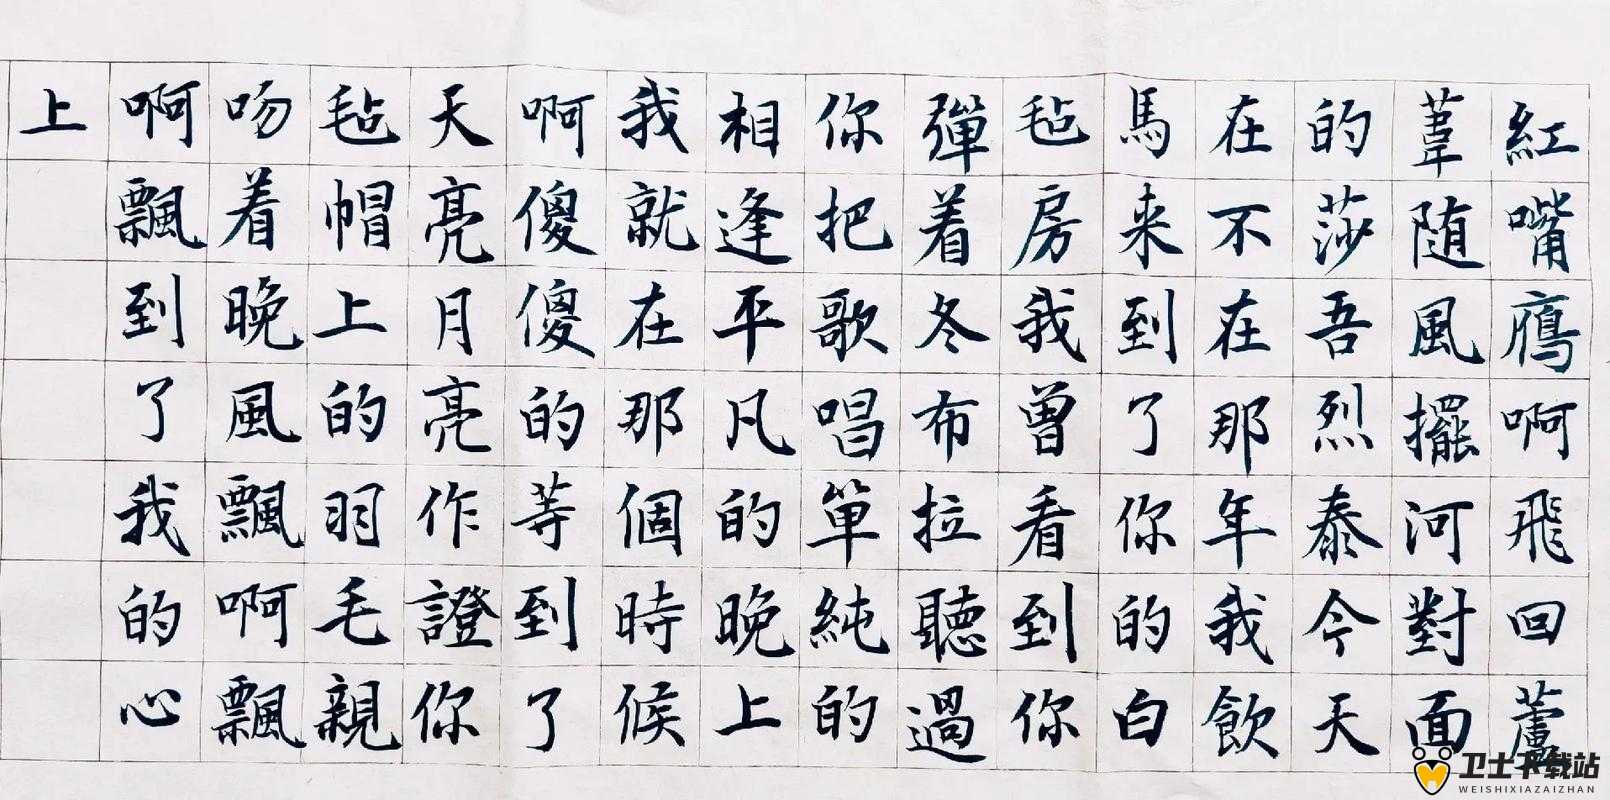 紅嘴鴈啊飛回蘆
葦随風擺河對面
的莎吾烈泰今天
在不在那年我飲
馬来到了你的白
毡房我曾看到你
彈着冬布拉聽過
你把歌唱單純的
相逢平凡的晚上
我就在那個時候
啊傻傻的等到了
天亮月亮作證你
毡帽上的羽毛親
吻着晚風飄啊飄
啊飄到了我的心
上
卫士下载站
WEISHIXIAZAIZHAN